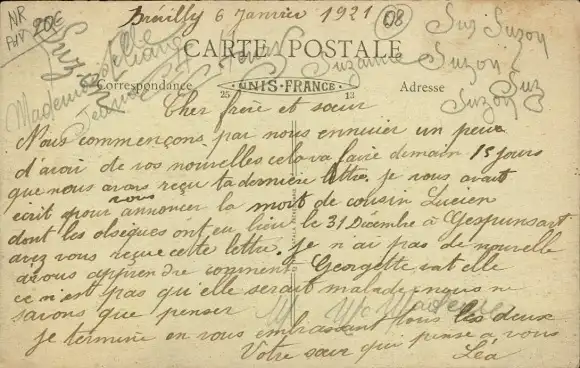 NR
20€
08
Bréuilly 6 Janvier 1921
Suz Suzon
CARTE POSTALE
Suzanne Suzon
Correspondance
UNIS-FRANCE
25 13
Adresse
Suzon Suz
Suzon
Mademoiselle
Jeanne
Cher frère et sœur
Nous commençons par nous ennuier un peux
d'avoir de vos nouvelles cela va faire demain 15 jours
que nous avons reçu ta dernière lettre. je vous avait
écrit pour vous annoncer la mort de cousin Lucien
dont les obseques ont eu lieu le 31 Décembre à Gespunsart
avez vous reçue cette lettre. je n'ai pas de nouvelle
avous apprendre comment Georgette vat elle
ce n'est pas qu'elle serait malade nous ne
savons que penser
M Mademoi
je termine en vous embrassant tous les deux
Votre sœur qui pense a vous
Léa